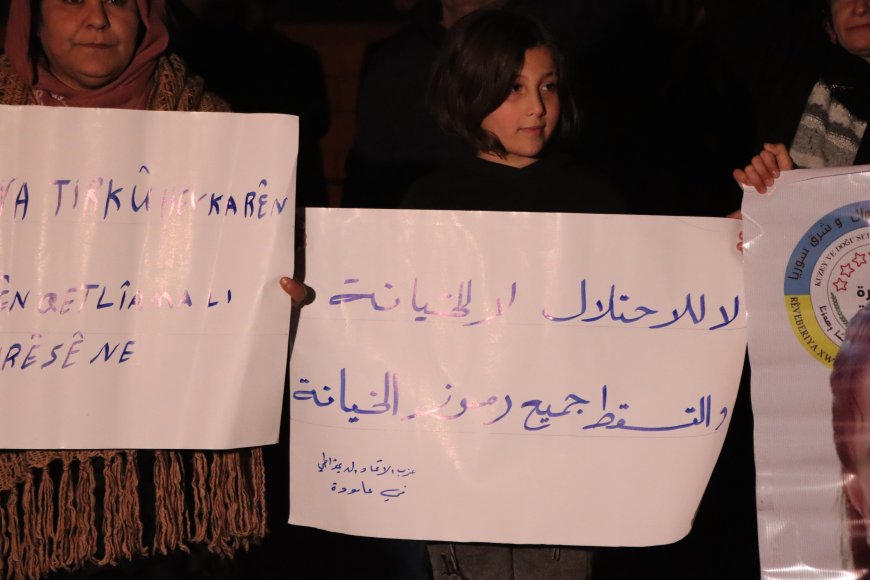 YA TIRKÛ HEVKARÊN
ÊN QETLÎAMA LI
RÊSÊ NE
لا للاحتلال لا للخيانة
والتسقط جميع رموز الخيانة
حزب الاتحاد الديمقراطي
في عامودة
ال و شرق سوريا
KUZEY VE DOĞU SU
RÊVEBERIYA XW